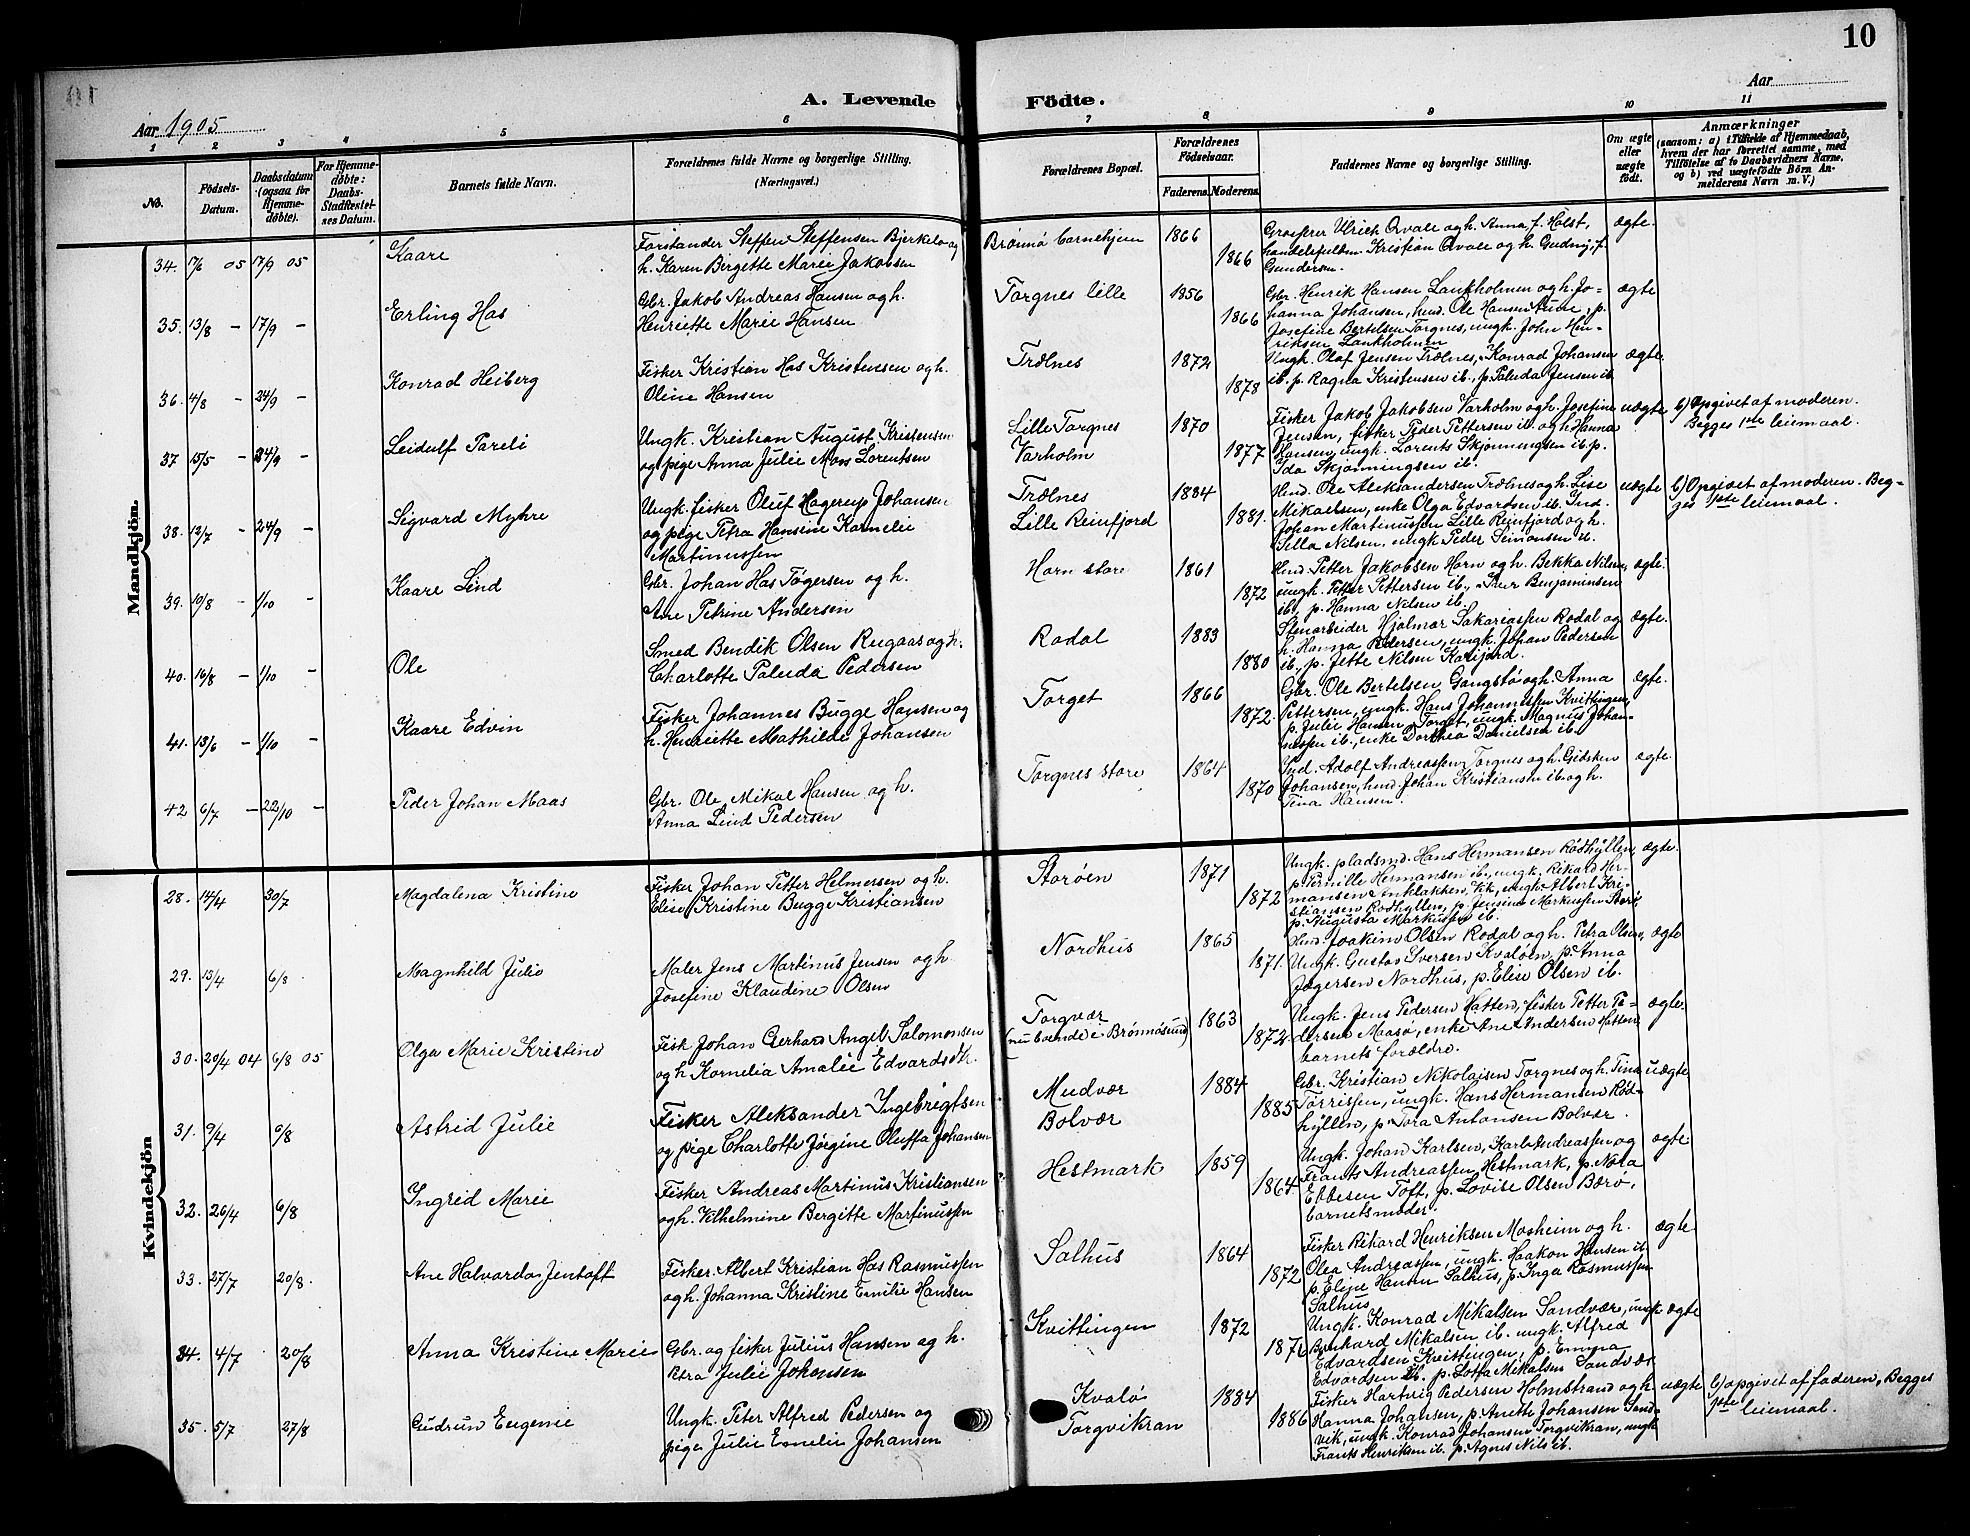 10
Aar
A. Levende Födte.
Aar 1905
1 2 3 4 5 6 7 8 9 10 11
No.
Födsels-Datum.
Daabsdatum (ogsaa for Hjemmedöbte).
For Hjemmedöbte: Daabs-Stadfestelses Datum.
Barnets fulde Navn.
Forældrenes fulde Navne og borgerlige Stilling.
(Næringsvei.)
Forældrenes Bopæl.
Forældrenes Födselsaar.
Faderens. Moderens.
Faddernes Navne og borgerlige Stilling.
Om ægte eller uægte födt.
Anmærkninger
(saasom: a) i Tilfælde af Hjemmedaab, hvem der har forrettet samme, med Tilföielse af to Daabsvidners Navne, og b) ved uægtefödte Börn Anmelderens Navn m. V.)
Mandkjön.
34. 17/6 05 17/9 05 Kaare
Forstander Steffen Steffensen Bjerkelo og
h. Karen Birgette Marie Jakobsen
Brönnö barnehjem 1866 1866
Grosfrer Ulrich Qvale og h. Anna f. Holst,
handelsfuldm. Kristian Qvale og h. Gudny f.
Gundersen.
ægte.
35. 13/8 - 17/9 - Erling Has
Gbr. Jakob Andreas Hansen og h.
Henriette Marie Hansen
Torgnes lille 1856 1866
Gbr. Henrik Hansen Lankholmen og h. Jo-
hanna Johansen, hmd. Ole Hansen Aune, p.
Josefine Bertelsen Torgnes, ungk. John Hen-
riksen Lankholmen
ægte
36. 4/8 - 24/9 - Konrad Heiberg
Fisker Kristian Has Kristensen og h.
Oline Hansen
Trælnes 1872 1878
Ungk. Olaf Jensen Trælnes, Konrad Johansen
ib. p. Ragna Kristensen ib., p. Paluda Jensen ib
ægte.
37 15/5 - 24/9 - Leidulf Pareli
Ungk. Kristian August Kristensen
og pige Anna Julie Mors Lorentsen
Lille Torgnes
Varholm
1870 1877
Fisker Jakob Jakobsen Varholm og h. Josefine
Jensen, fisker Peder Pettersen ib. og h. Hanna
Hansen, ungk. Lorents Skjønningsen ib. p.
Ida Skjønningsen ib.
uægte
b) Opgivet af moderen.
Begges 1ste leiemaal.
38. 12/7 - 24/9 - Sigvard Myhre
Ungk. fisker Oluf Hagerup Johansen
og pige Petra Hansine Kornelie
Martinussen
Trælnes
Lille Reinfjord
1884 1881.
Hmd. Ole Aleksandersen Trælnes og h. Lise
Mikaelsen, enke Olga Edvardsen ib. Ind.
Johan Martinussen Lille Reinfjord og h.
Silla Nilsen, ungk Peder Simonsen ib.
uægte
b) Opgivet af moderen. Beg-
ges 1ste leiemaal.
39. 10/8 - 1/10 - Kaare Lind
Gbr. Johan Has Tøgersen og h.
Ane Petrine Andersen
Horn store 1861 1872
Hmd. Petter Jakobsen Horn og h. Bekka Nilsen,
ungk. Petter Pettersen ib., Benjaminsen
ib., p. Hanna Nilsen ib.
ægte.
40. 16/8 - 1/10 - Ole
Smed Bendik Olsen Rugaas og h.
Charlotte Paluda Pedersen
Rodal 1883 1880
Stenarbeider Hjalmar Sakariassen Rodal og
h. Hanna Pedersen, ungk. Johan Pedersen
ib., p. Jette Nilsen Karijord.
ægte.
41. 13/6 - 1/10 - Kaare Edvin
Fisker Johannes Bugge Hansen og
h. Henriette Mathilde Johansen
Torget 1866 1872.
Gbr. Ole Bertelsen Gangstø og h. Anna
Pettersen, ungk. Hans Johannessen Kvittingen,
p. Julie Hansen Torget, ungk. Magnus Johan-
nessen ib., enke Dorthea Danielsen ib.
ægte.
42 6/7 - 22/10 - Peder Johan Maas
Gbr. Ole Mikal Hansen og h.
Anna Lind Pedersen
Torgnes store 1864 1870
Ind. Adolf Andreassen Torgnes og h. Gidsken
Johansen, hmd Johan Kristiansen ib. og h.
Tina Hansen.
ægte.
Kvindekjön
28. 14/4 30/7 Magdalena Kristine
Fisker Johan Petter Helmersen og h.
Elise Kristine Bugge Kristiansen
Storøen 1871 1872
Ungk. pladsmd. Hans Hermansen Rödhyllen,
p. Pernille Hermansen ib., ungk. Rikard Her-
mansen Anklakken, kk, ungk. Albert Kri-
stiansen Rødhyllen, p. Jensine Markussen Storø
p. Augusta Markussen ib.
ægte.
29. 13/4 6/8 Magnhild Julie
Maler Jens Martinus Jensen og h
Josefine Klaudine Olsen
Nordhus 1865 1871.
Hmd. Joakim Olsen Rodal og h. Petra Olsen,
Ungk. Gustav Iversen Kvaløen, p. Anna
Jøgersen Nordhus, p. Elise Olsen ib.
ægte
30. 20/4 04 6/8 05 Olga Marie Kristine
Fisk Johan Gerhard Angel Salomonsen
og h Kornelia Amalie Edvardsdtr.
Torgvær
(nu boende i Brønnøsund)
1863 1872.
Ungk. Jens Pedersen Hatten, fisker Petter Pe-
dersen Maasø, enke Ane Andersen Hatten
barnets forældre.
ægte.
31. 9/4 6/8 Astrid Julie
Fisker Aleksander Ingebrigtsen
og pige Charlotte Jørgine Oluffa Johansen
Mudvær
Bolvær
1884 1885
Gbr. Kristian Nikolaisen Torgnes og h. Tina
Torrissen, ungk. Hans Hermansen Rød-
hyllen, p. Tora Antonsen Bolvær.
uægte
32. 26/4 6/8 Ingrid Marie
Fisker Andreas Martinus Kristiansen
og h. Vilhelmine Bergitte Martinussen
Hestmark 1859 1864.
Ungk. Johan Karlsen, Karl Andreassen og
Frants Andreassen Hestmark, p. Nora
Ebbesen Toft, p. Lovise Olsen Bærø,
barnets moder.
ægte
33. 27/7 20/8. Ane Halvarda Jentoft
Fisker Albert Kristian Has Rasmussen
og h. Johanna Kristine Emilie Hansen
Salhus 1864 1872
Fisker Rikard Henriksen Mosheim og h.
Olea Andreassen, ungk. Haakon Hansen ib
p. Eline Hansen Salhus, p. Inga Rasmussen
Salhus
ægte
34. 4/7 20/8 Anna Kristine Marie
Gbr. og fisker Julius Hansen og h.
Petra Julie Johansen
Kvittingen 1872 187
Ungk. Konrad Mikalsen Sandvær, ungk
Bernhard Mikalsen ib. ungk. Alfred
Edvardsen Kvittingen, p. Emma
Edvardsen ib. p. Lotta Mikalsen Sandvær
ægte
35. 5/7 27/8 Gudrun Eugenie
Ungk. Peter Alfred Pedersen og
pige Julie Emelie Johansen
Kvalø
Torgvikran
1884 1886
Fisker Hartvig Pedersen Holmstrand og h.
Hanna Johansen, p. Anette Johansen Sand-
vik, ungk. Konrad Johansen Torgvikran, ungk
Frants Henriksen ib. p. Agnes Nils ib.
uægte
b) opgivet af faderen, Begges
1ste leiemaal.